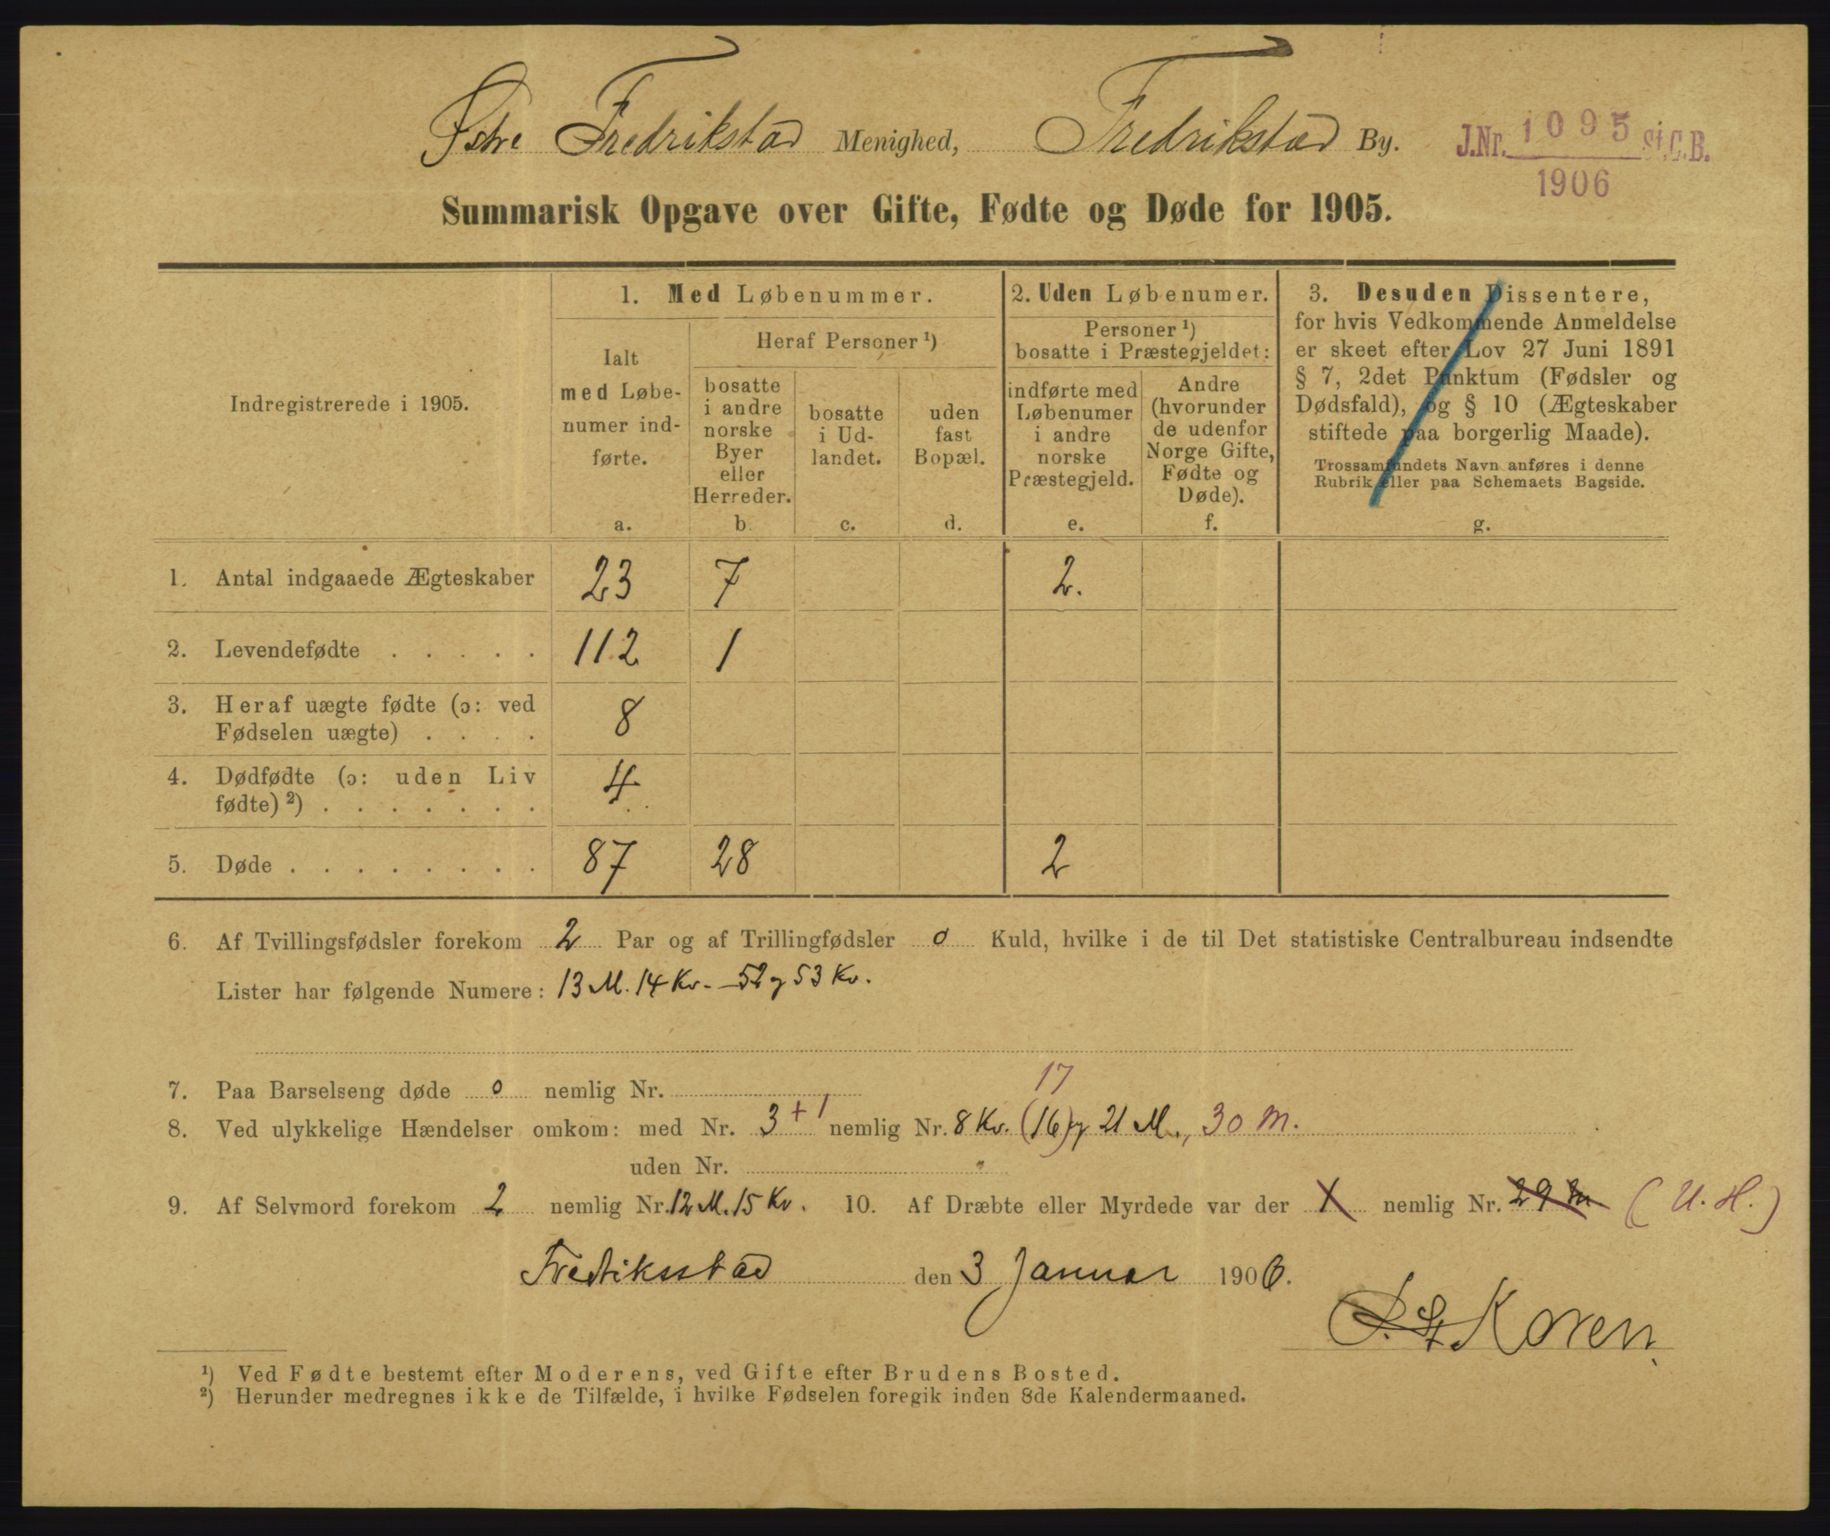 Østre Fredrikstad Menighed, Fredrikstad By.
J.Nr. 1095 St.C.B.
1906
Summarisk Opgave over Gifte, Fødte og Døde for 1905.
Indregistrerede i 1905.
1. Med Løbenummer.
Ialt
med Løbe-
numer ind-
førte.
a.
Heraf Personer ¹)
bosatte
i andre
norske
Byer
eller
Herreder.
b.
bosatte
i Ud-
landet.
c.
uden
fast
Bopæl.
d.
2. Uden Løbenumer.
Personer ¹)
bosatte i Præstegjeldet:
indførte med
Løbenumer
i andre
norske
Præstegjeld.
e.
Andre
(hvorunder
de udenfor
Norge Gifte,
Fødte og
Døde).
f.
3. Desuden Dissentere,
for hvis Vedkommende Anmeldelse
er skeet efter Lov 27 Juni 1891
§ 7, 2det Punktum (Fødsler og
Dødsfald), og § 10 (Ægteskaber
stiftede paa borgerlig Maade).
Trossamfundets Navn anføres i denne
Rubrik eller paa Schemaets Bagside.
g.
1. Antal indgaaede Ægteskaber 23 7 2.
2. Levendefødte . . . . . 112 1
3. Heraf uægte fødte (ɔ: ved
Fødselen uægte) . . . . 8
4. Dødfødte (ɔ: uden Liv
fødte) ²) . . . . . . . 4
5. Døde . . . . . . . . 87 28 2
6. Af Tvillingsfødsler forekom 2 Par og af Trillingfødsler 0 Kuld, hvilke i de til Det statistiske Centralbureau indsendte
Lister har følgende Numere: 13 M. 14 Kv. - 52 og 53 Kv.
7. Paa Barselseng døde 0 nemlig Nr.
17
8. Ved ulykkelige Hændelser omkom: med Nr. 3 + 1 nemlig Nr. 8 Kv. (16) og 21 M., 30 M.
uden Nr. "
9. Af Selvmord forekom 2 nemlig Nr. 12 M. 15 Kv. 10. Af Dræbte eller Myrdede var der 1 nemlig Nr. 29 (U. H.)
Fredriksstad den 3 Januar 1906.
Koren
¹) Ved Fødte bestemt efter Moderens, ved Gifte efter Brudens Bosted.
²) Herunder medregnes ikke de Tilfælde, i hvilke Fødselen foregik inden 8de Kalendermaaned.